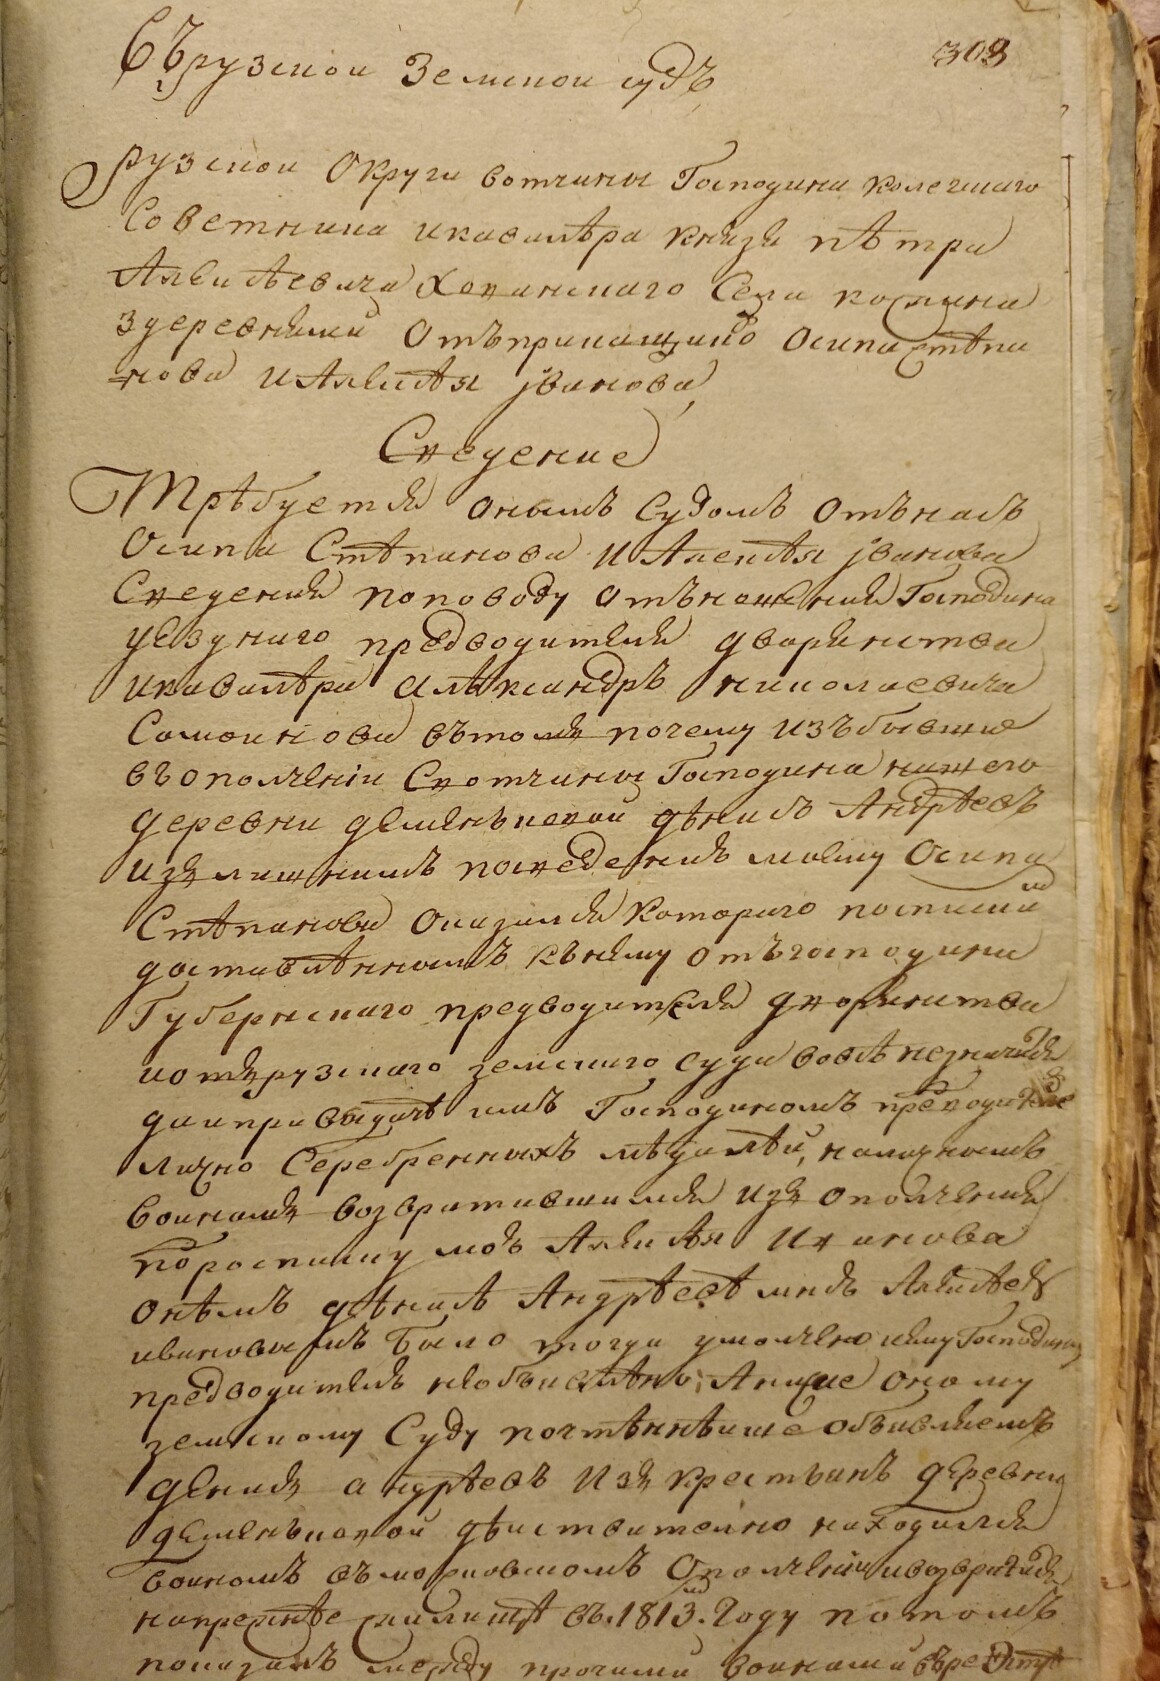 303
Въ рузской Земской судъ
рузской Округи вотчины Господина колегскаго
Советника икавалѣра князя пѣтра
Алексѣевича Хованскаго Села
здеревнями Отъ Осипа стѣпа
нова и Алексѣя jванова
Сведение
Трѣбуется онымъ Судомъ отънасъ
Осипа Стѣпанова и Алексѣя jванова
Сведения поповоду отъношения Господина
уезднаго предводителя дворянства
икавалѣра алѣксандръ николаевича
Самойлова въ томъ почему изъбывшие
въополчении Свотчины Господина нашего
деревни деменьковой дѣнисъ Андрѣевъ
излишнимъ поведениѣ моему Осипа
Стѣпанова Оказался Котораго поспискам
доставлѣнномъ къ нему отъгосподина
Губернскаго предводителя дворянства
иотъ рузскаго земскаго суда вовсѣ незначился
даипривыдаче имъ Господиномъ предводителе
лично Серебренныхъ мѣдалѣй, наличнымъ
воинамъ возвратившимся изъ ополчения
пороспискѣ мою Алексѣя Иванова
Онѣмъ дѣнисѣ Андрѣевѣ мною Алексѣем
ивановымъ было тогда умолчено иему Господину
предводителю необъявлѣно, Аныне оному
земскому Суду почтѣннѣише объявляемъ
денисъ андрѣевъ Изъ крестьянъ деревни
деменьковой дѣиствително находился
воиномъ въ московскомъ Ополчении ивозвратился
напрежнее жилищѣ въ. 1813.м Году потомъ
показанъ между прочими воинами въреэстрѣ